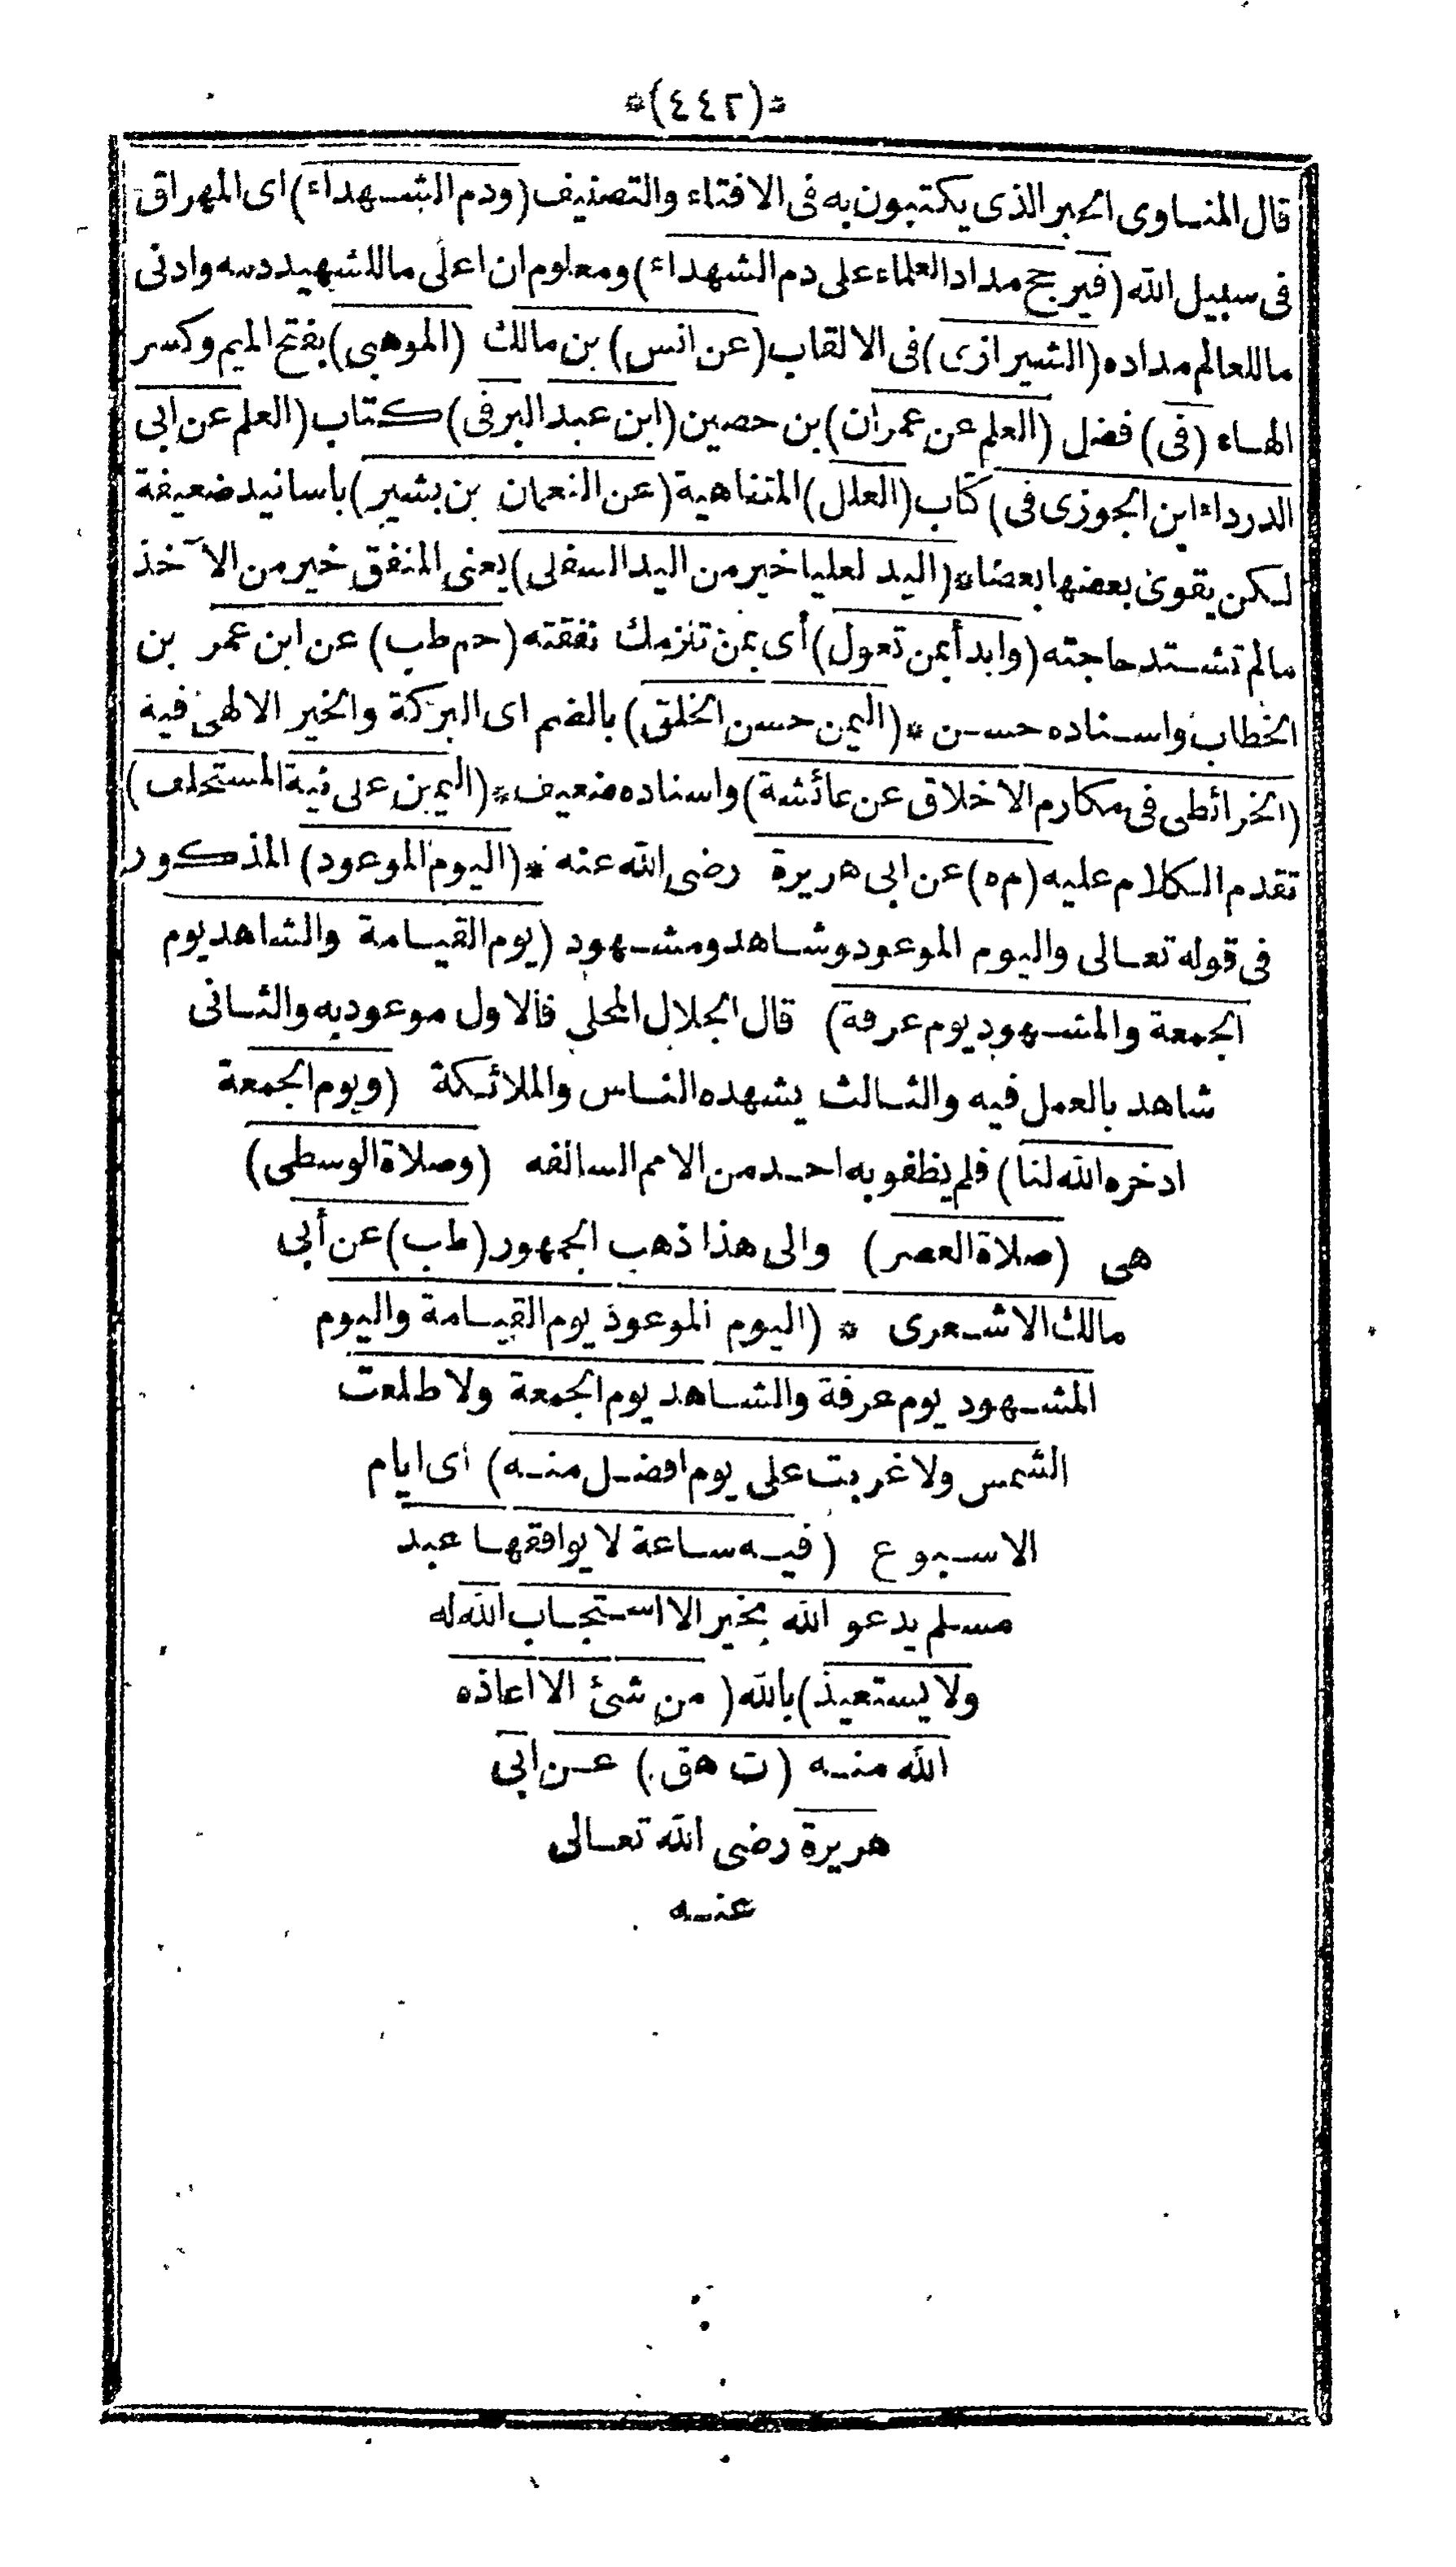 *(٤٤٢)*
قال المناوى الحبر الذى يكتبون به فى الافتاء والتصنيف (ودم الشهداء) اى المهراق
فى سبيل الله (فيرجح مداد العلماء على دم الشهداء) ومعلوم ان اعلى ما للشهيد دمه وادنى
ما للعالم مداده (الشيرازى) فى الالقاب (عن انس) بن مالك (الموهبى) بفتح الميم وكسر
الهاء (فى) فضل (العلم عن عمران) بن حصين (ابن عبد البر فى) كتاب (العلم عن ابى
الدرداء ابن الجوزى فى) كتاب (العلل) المتناهية (عن النعمان بن بشير) باسانيد ضعيفة
لكن يقوى بعضها بعضا * (اليد لعليا خير من اليد السفلى) يعنى المنفق خير من الآخذ
مالم تشتد حاجته (وابدأ بمن تعول) أى بمن تلزمك نفقته (حم طب) عن ابن عمر بن
الخطاب واسناده حسن * (اليمن حسن الخلق) بالضم اى البركة والخير الالهى فيه
(الخرائطى فى مكارم الاخلاق عن عائشة) واسناده ضعيف * (اليمين على نية المستحلف)
تقدم الكلام عليه (م ه) عن ابى هريرة رضى الله عنه * (اليوم الموعود) المذكور
فى قوله تعالى واليوم الموعود وشاهد ومشهود (يوم القيامة والشاهد يوم
الجمعة والمشهود يوم عرفة) قال الجلال المحلى فالاول موعود به والثانى
شاهد بالعمل فيه والثالث يشهده الناس والملائكة (ويوم الجمعة
ادخره الله لنا) فلم يظفو به احد من الامم السالفه (وصلاة الوسطى)
هى (صلاة العصر) والى هذا ذهب الجمهور (طب) عن أبى
مالك الاشعرى * (اليوم الموعود يوم القيامة واليوم
المشهود يوم عرفة والشاهد يوم الجمعة ولا طلعت
الشمس ولا غربت على يوم افضل منه) اى ايام
الاسبوع (فيه ساعة لا يوافقها عبد
مسلم يدعو الله بخير الا استجاب الله له
ولا يستعيذ) بالله (من شئ الا اعاذه
الله منه (ت هق) عن ابى
هريرة رضى الله تعالى
عنه